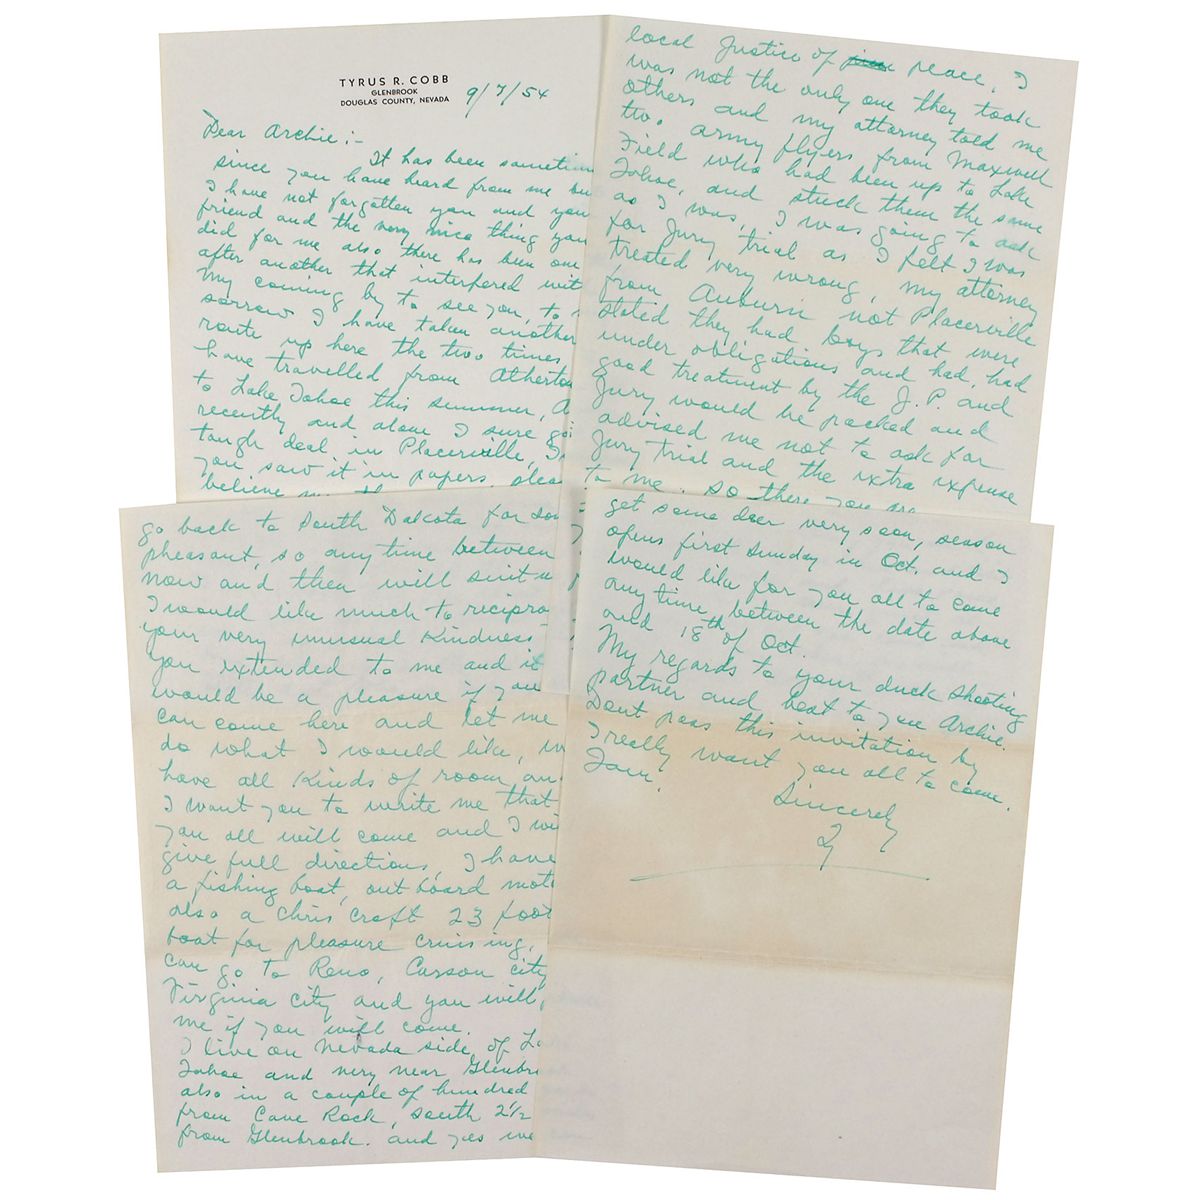 TYRUS R. COBB
GLENBROOK
DOUGLAS COUNTY, NEVADA
9/7/54
Dear Archie:-
It has been sometim
since you have heard from me bu
I have not forgotten you and you
friend and the very nice thing you
did for me also there has been one
after another that interfered wit
my coming by to see you, to
sorrow I have taken another
route up here the two times
have travelled from Atherton
to Lake Tahoe this summer,
recently and alone I sure go
tough deal in Placerville, I
you saw it in papers pleas
believe me th
local Justice of peace, I
was not the only one they took
others and my attorney told me
two army flyers from Maxwell
Field who had been up to Lake
Tahoe, and stuck them the same
as I was, I was going to ask
for Jury trial as I felt I was
treated very wrong, my attorney
from Auburn not Placerville
stated they had boys that were
under obligations and had, had
good treatment by the J. P. and
Jury would be packed and
advised me not to ask for
Jury trial and the extra expense
to me. so there you are
go back to South Dakota for som
pheasant, so anytime between
now and then will suit u
I would like much to recipro
your very unusual Kindness
you extended to me and it
would be a pleasure if you
can come here and let me
do what I would like, w
have all kinds of room an
I want you to write me that
you all will come and I wi
give full directions, I have
a fishing boat, out board moto
also a Chris Craft 23 foot
boat for pleasure cruising,
can go to Reno, Carson city
Virginia City and you will
me if you will come.
I live on Nevada side of La
Tahoe and very near Glenbr
also in a couple of hundred
from Cave Rock, south 2½
from Glenbrook. and yes we
get some deer very soon, season
opens first Sunday in Oct. and I
would like for you all to come
anytime between the date above
and 18th of Oct.
My regards to your duck shooting
partner and best to you Archie.
Dont pass this invitation by
I really want you all to come.
Sincerely
Ty